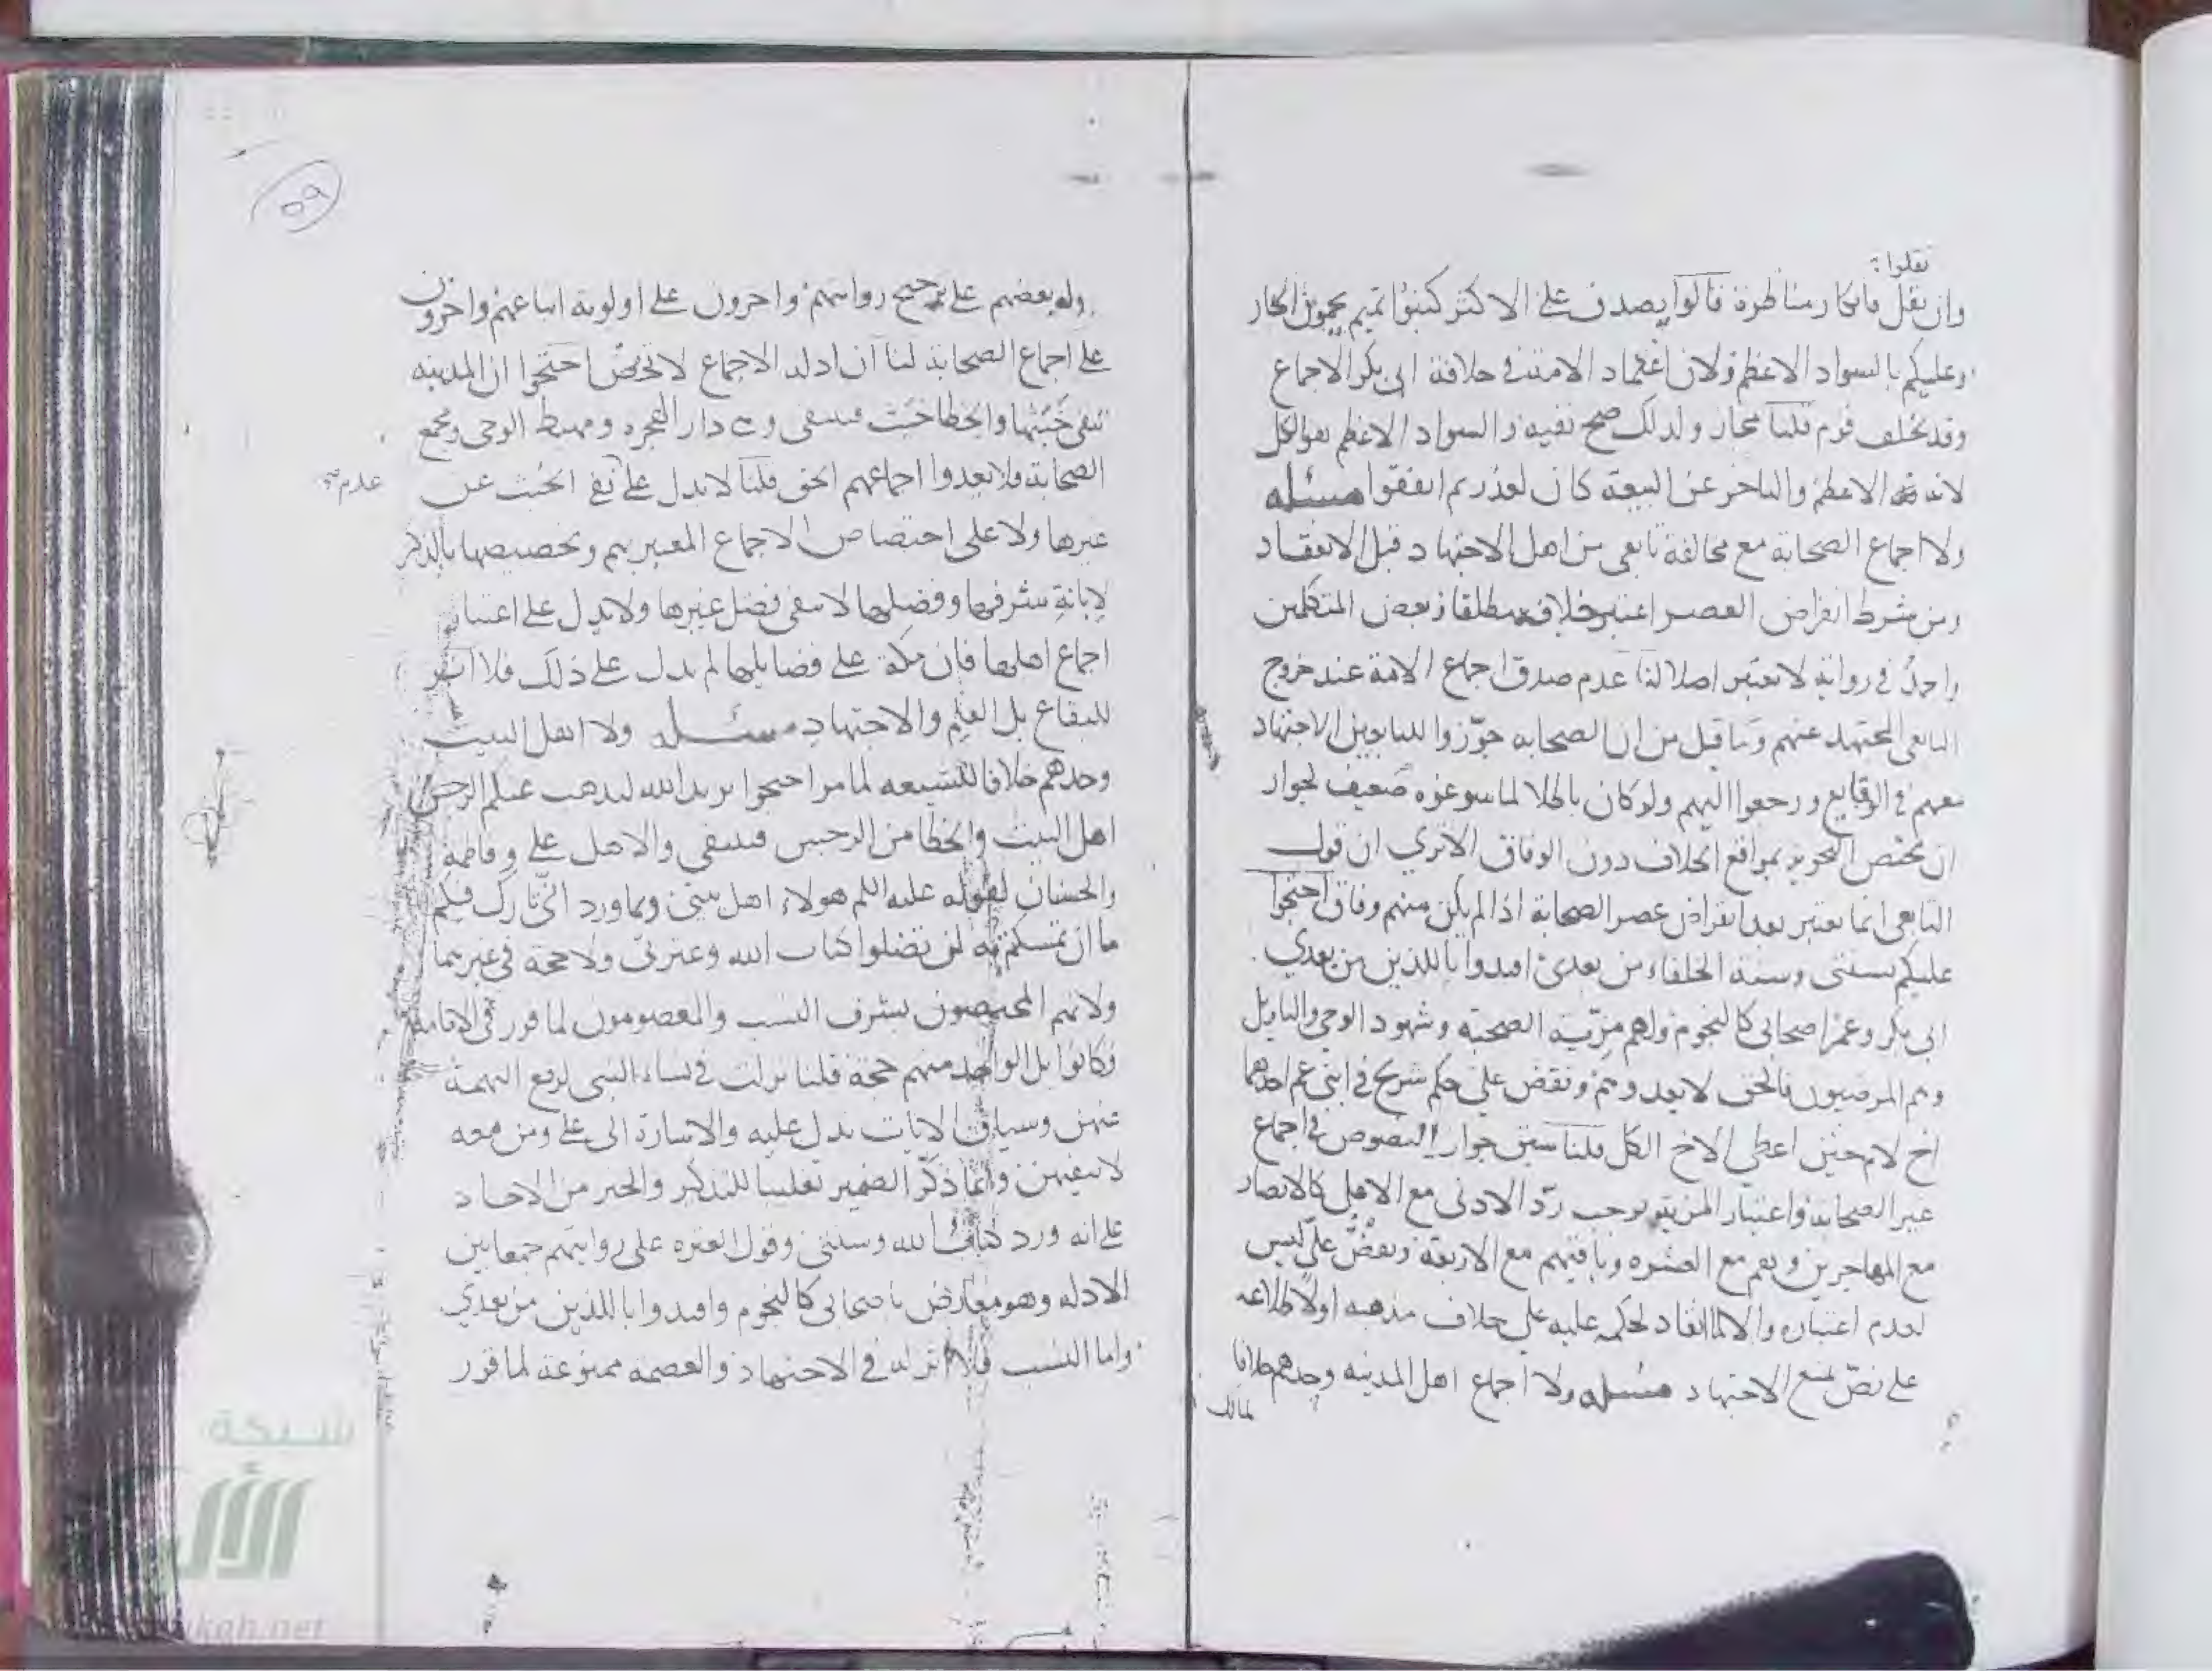 نقلوا
وان نقل فانكار مناظرة قالوا يصدق على الاكثر كبنوا تميم يحمون الجار
وعليكم بالسواد الاعظم ولان اعتماد الامة في خلافة ابى بكر الاجماع
وقد تخلف قوم قلنا مجاز ولذلك صح نفيه والسواد الاعظم هو الكل
لانه الاعظم والتاخر عن البيعة كان لعذر ثم اتفقوا مسئله
ولا اجماع الصحابة مع مخالفة تابعى من اهل الاجتهاد قبل الانعقاد
ومن شرط انقراض العصر اعتبر خلافه مطلقا وبعض المتكلمين
واحمد في رواية لا تعتبر اصلا لنا عدم صدق اجماع الامة عند خروج
التابعى المجتهد عنهم وما قيل من ان الصحابه جوّزوا للتابعين الاجتهاد
معهم في الوقايع ورجعوا اليهم ولو كان باطلا لما سوغوه ضعيف لجواز
ان يختص التجويز بمواقع الخلاف دون الوفاق الا ترى ان قول
التابعى انما يعتبر بعد انقراض عصر الصحابة اذا لم يكن منهم وفاق احتجوا
عليكم بسنتى وسنة الخلفاء من بعدى اقتدوا باللذين من بعدي
ابى بكر وعمر اصحابى كالنجوم ولهم مزيّة الصحبة وشهود الوحى والتاويل
وهم المرضيون فالحق لا يعدوهم ونقض على حكم شريح في ابنى عم احدهما
اخ لام حين اعطى الاخ الكل قلنا سبق جواز النصوص في اجماع
غير الصحابة واعتبار المزية يوجب ردّ الادنى مع الاعلى كالانصار
مع المهاجرين وهم مع العشره وباقيهم مع الاربعة ونقضُ علىّ ليس
لعدم اعتباره والا لما انقاد لحكمه عليه على خلاف مذهبه اولا لاطلاعه
على نصّ يمنع الاجتهاد مسئله ولا اجماع اهل المدينه وحدهم خلافا
لمالك
٥٩
وله بعضهم على ترجيح روايتهم واخرون على اولوية اتباعهم واخرون
على اجماع الصحابة لنا ان ادلة الاجماع لا تخص احتجوا ان المدينه
تنفى خَبَثها والخطا خبَث فينتفى وهى دار الهجره ومهبط الوحى ومجمع
الصحابة فلا يعدوا اجماعهم الحق قلنا لا يدل على نفى الخبث عن
عدم
غيرها ولا على اختصاص الاجماع المعتبر بهم وتخصيصها بالذكر
لإبانةِ شرفها وفضلها لا ينفى فضل غيرها ولا يدل على اعتبار
اجماع اهلها فان مكة على فضايلها لم يدل على ذلك فلا اثر
للبقاع بل العلم والاجتهاد مسئله ولا اهل البيت
وحدهم خلافا للشيعه لما مر احتجوا يريد الله ليذهب عنكم الرجس
اهل البيت والخطا من الرجس فينتفى والاهل على وفاطمة
والحسنان لقوله عليه السلم هولاء اهل بيتى وبما ورد انّى تارك فيكم
ما ان تمسكتم به لن تضلوا كتاب الله وعترتى ولا حجة في غيرهما
ولانهم المختصون بشرف النسب والمعصومون لما قرر في الامامة
فكانوا بل الواحد منهم حجة قلنا نزلت في نساء النبى لدفع التهمة
عنهن وسياق الايات يدل عليه والاشارة الى على ومن معه
لا ينفيهن وانما ذكّر الضمير تغليبا للتذكير والخبر من الاحاد
على انه ورد كتاب الله وسنتى وقول العتره على روايتهم جمعا بين
الادله وهو معارض باصحابى كالنجوم واقتدوا باللذين من بعدي
واما النسب فلا اثر له في الاجتهاد والعصمة ممنوعة لما قرر
شبكة
الألوكة
ukah.net